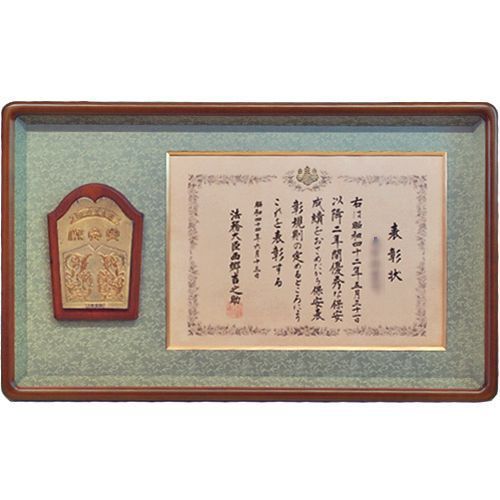 表彰状
右は昭和四十二年五月三十一日
以降二年間優秀な保安
成績をおさめたから保安表
彰規則の定めるところにより
これを表彰する
昭和四十四年六月十三日
法務大臣西郷吉之助